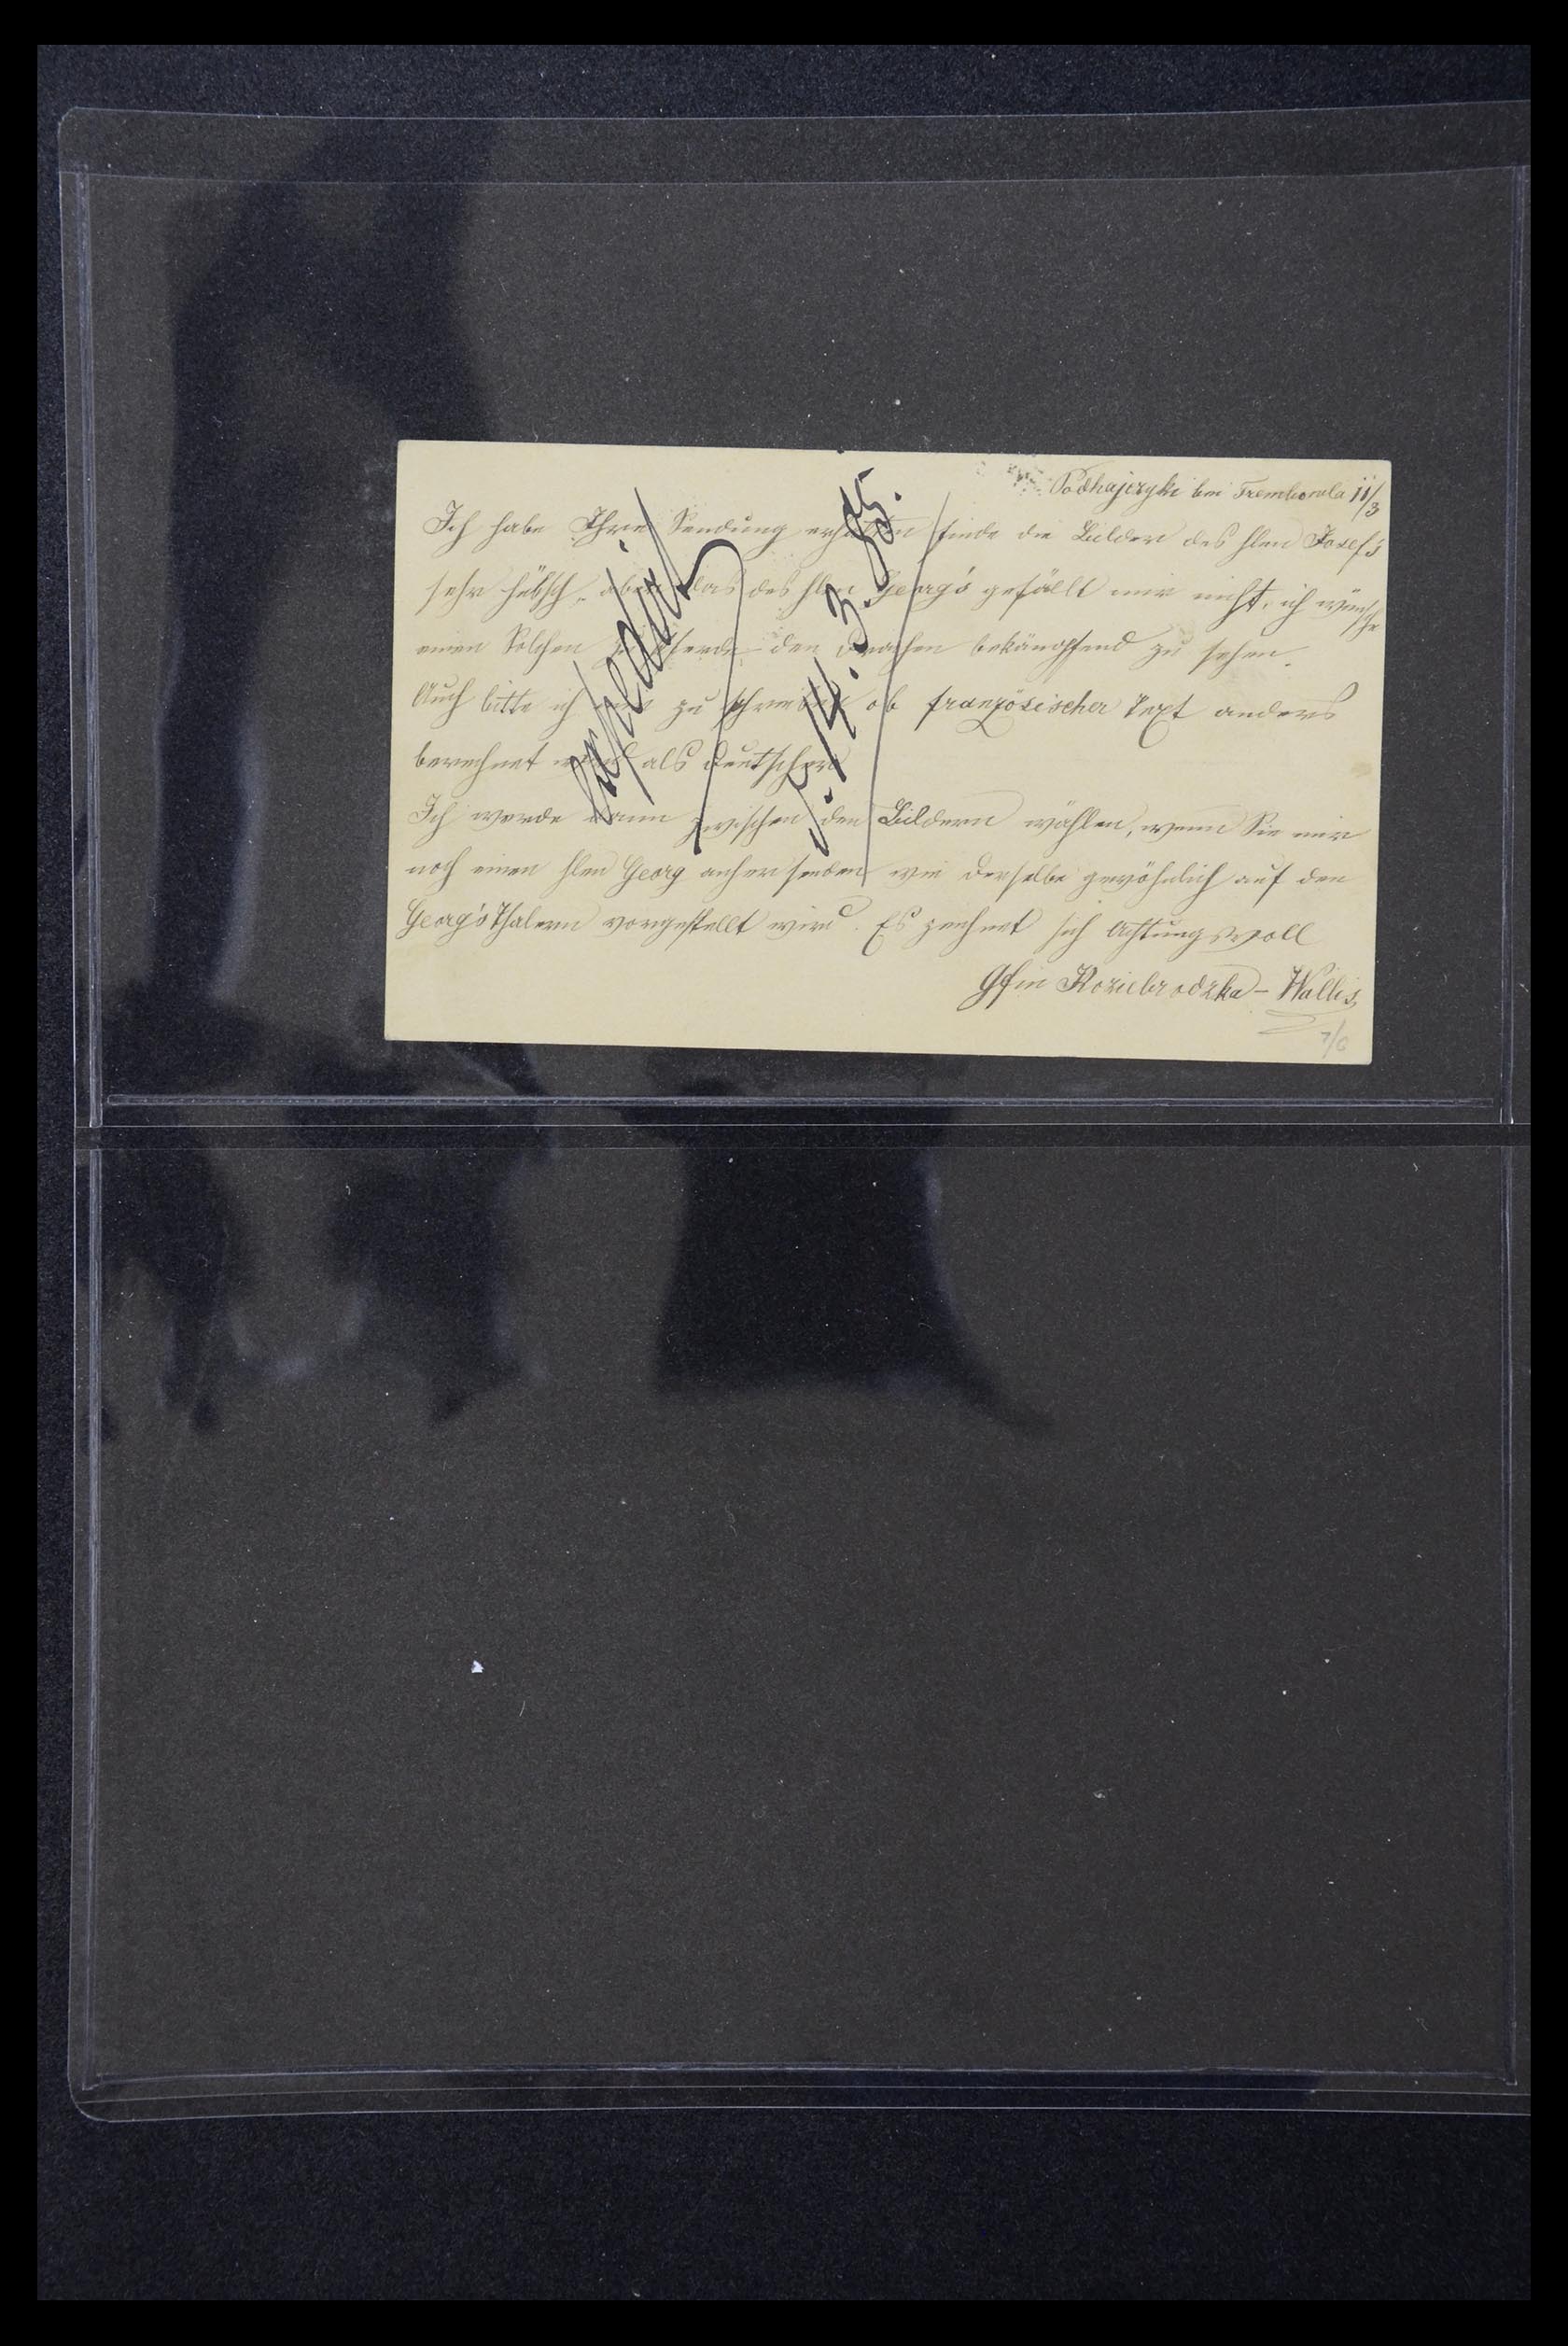 Podhajczyki bei Trembowla 11/3
Ich habe Ihre Sendung erhalten finde die Bilder des hlen Josef's
sehr hübsch, aber das des hlen Georg's gefällt mir nicht, ich wünsche
einen Solchen Pferde den Drachen bekämpfend zu sehen.
Auch bitte ich mir zu schreiben ob französischer Text anders
berechnet wird als deutscher
Ich werde dann zwischen den Bildern wählen, wenn Sie mir
noch einen hlen Georg anher senden wie derselbe gewöhnlich auf den
Georg's Thalern vorgestellt wird. Es zeichnet sich Achtungsvoll
Gfin Koziebrodzka - Wallis
7/6
Expedirt
14. 3. 85.